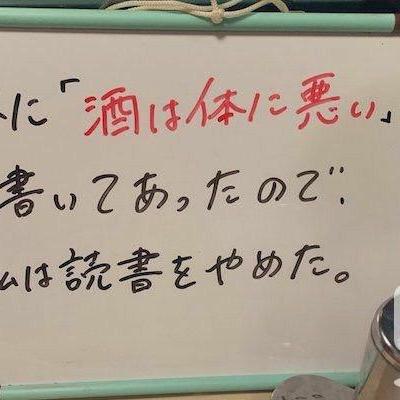 に「酒は体に悪い」
書いてあったので、
私は読書をやめた。